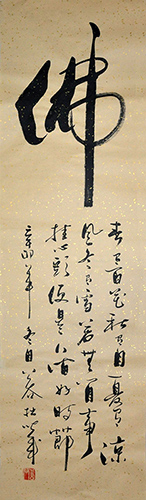 佛
春有百花秋有月夏有涼
風冬有雪若無閒事
挂心頭便是人間好時節
辛卯年冬月